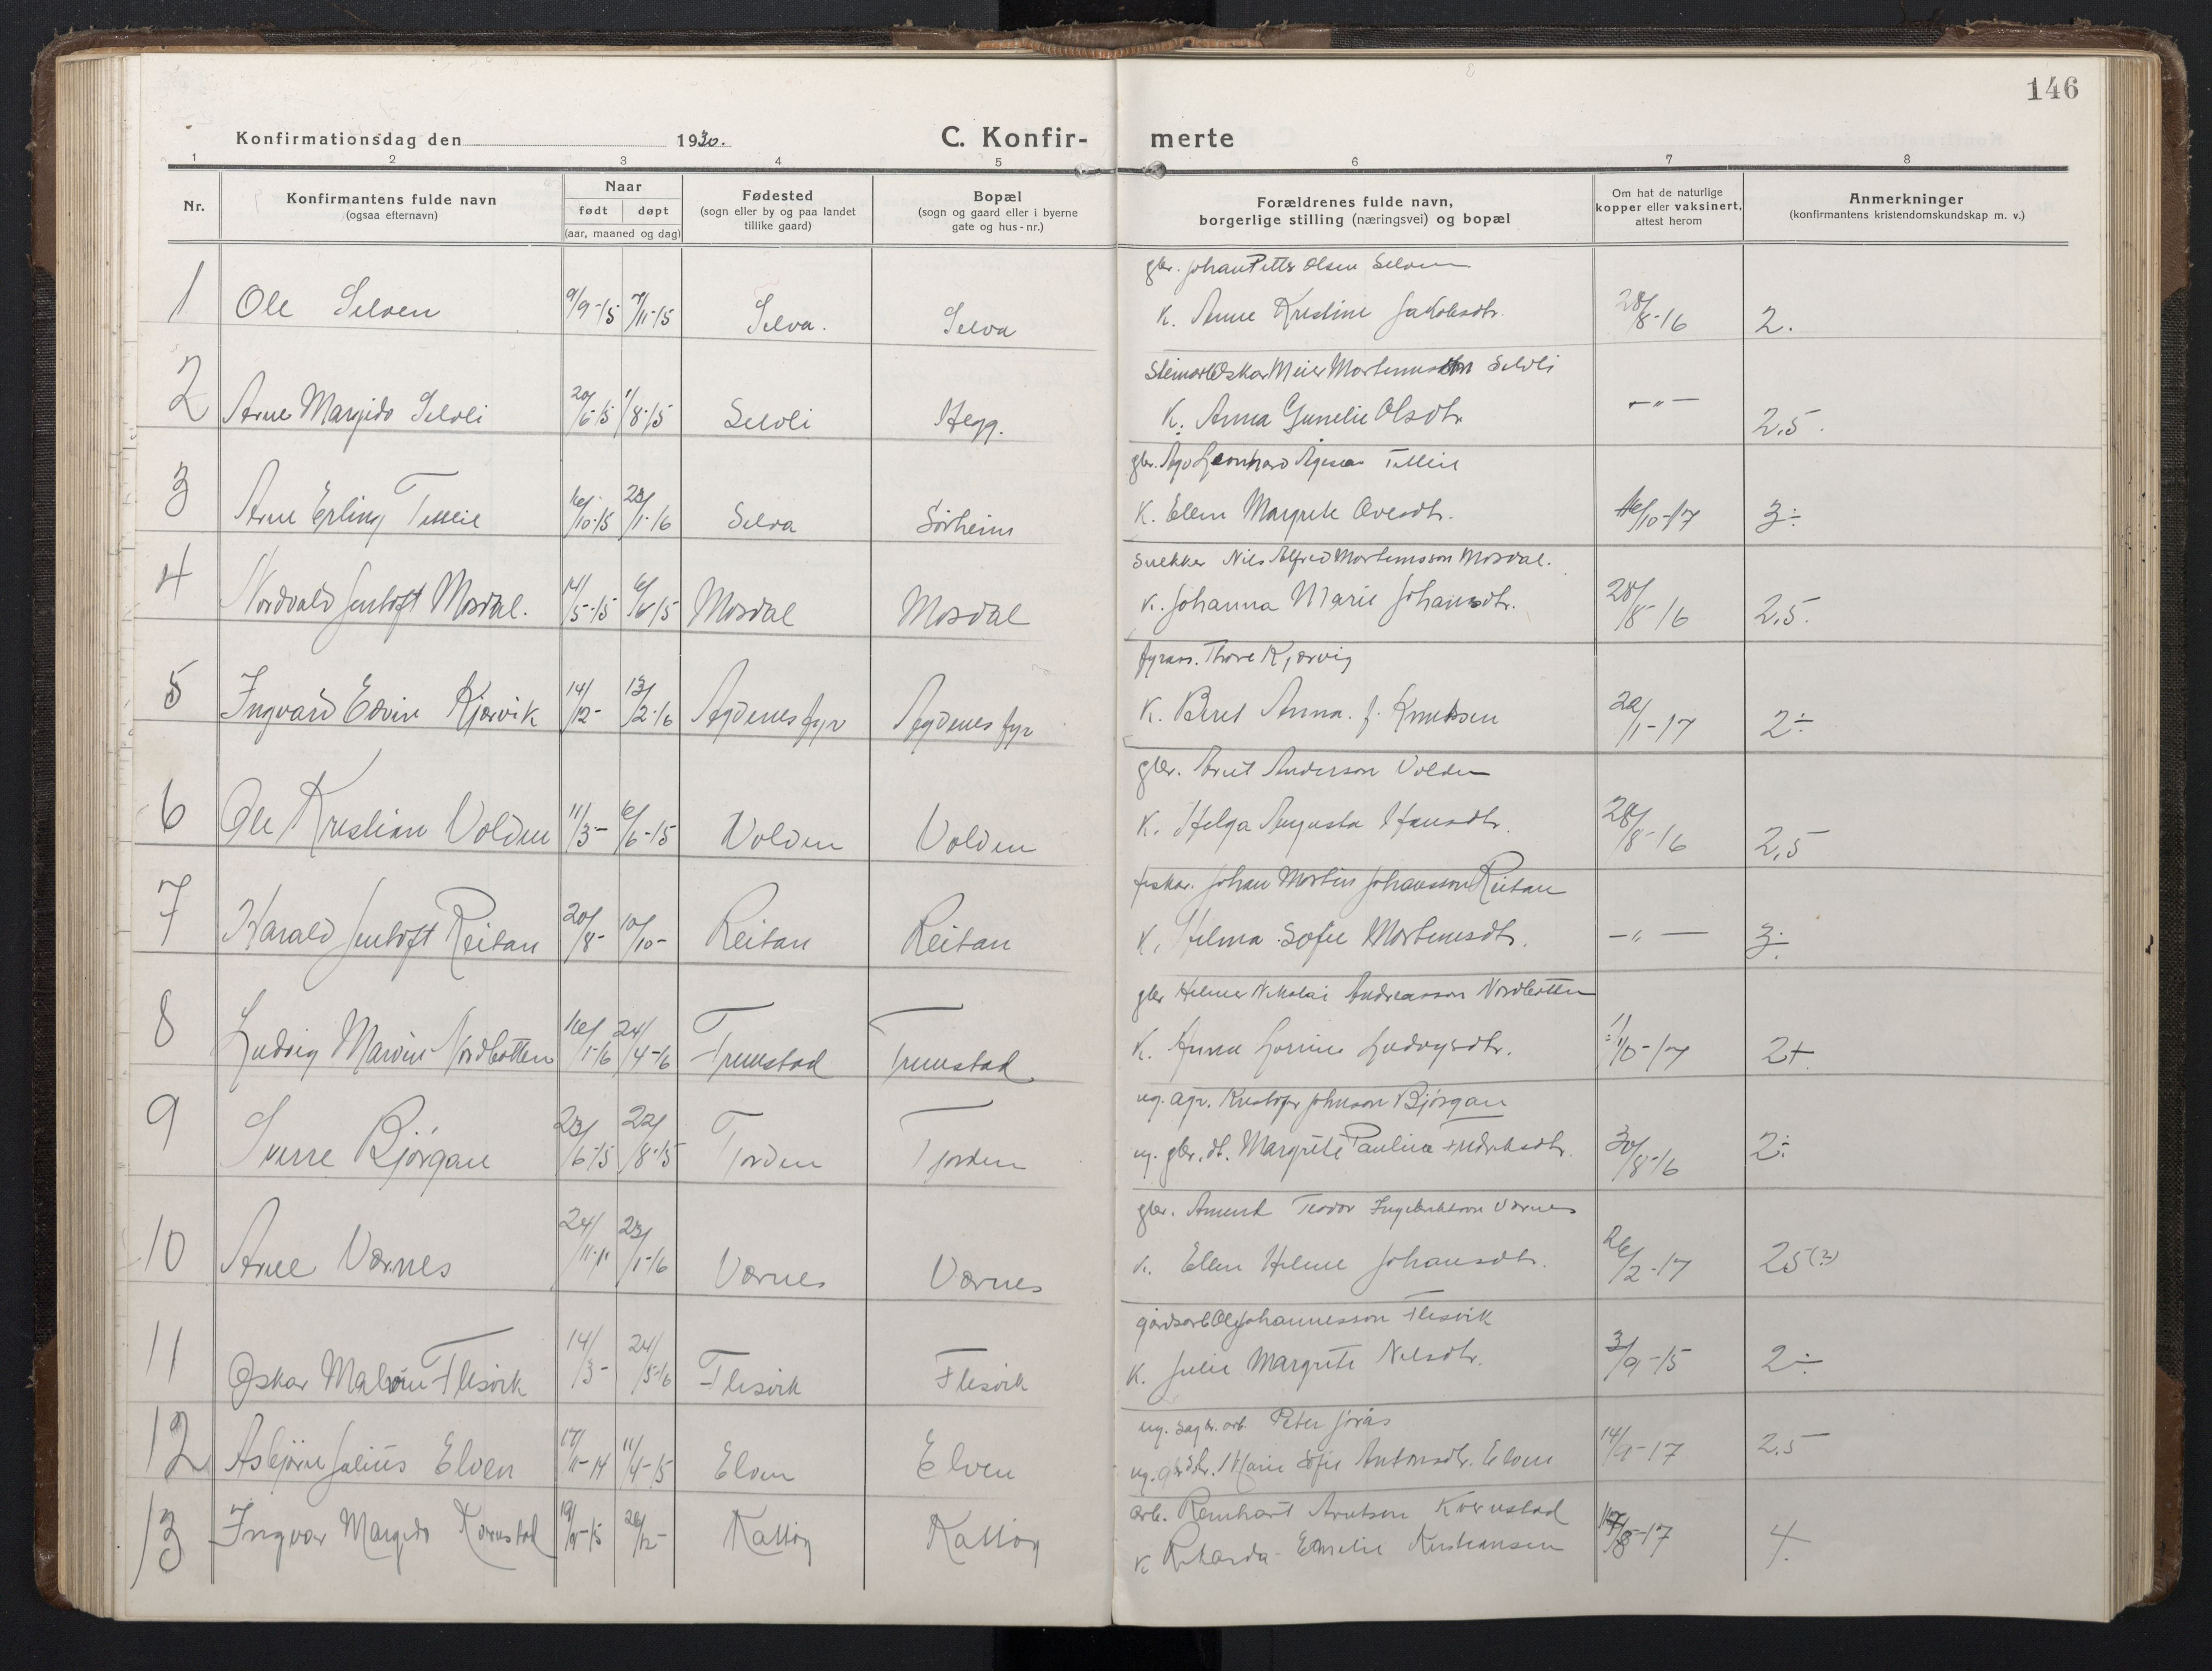 146
Konfirmationsdag den 1930.
C. Konfir- merte
1 2 3 4 5 6 7 8
Nr.
Konfirmantens fulde navn
(ogsaa efternavn)
Naar
født døpt
(aar, maaned og dag)
Fødested
(sogn eller by og paa landet
tillike gaard)
Bopæl
(sogn og gaard eller i byerne
gate og hus-nr.)
Forældrenes fulde navn,
borgerlige stilling (næringsvei) og bopæl
Om hat de naturlige
kopper eller vaksinert,
attest herom
Anmerkninger
(konfirmantens kristendomskundskap m. v.)
gbr. Johan Petter Olsen Selven
1 Ole Selven 9/9-15 7/11-15 Selva. Selva K. Anne Kristine Jakobsdtr. 28/8-16 2.
Oskar Meier Mortensson Selvli
2 Arne Margido Selvli 20/6-15 1/8-15 Selvli Hegg. K. Anna Gunelie Olsdtr. -"- 2,5.
gbr. Leonhard Tellie
3 Arne Erling Tellie 16/10-15 23/1-16 Selva Sørheim K. Elen Margrete Ovesdtr. 16/10-17 3÷
Snekker Nils Alfred Mortensson Mosdal.
4 Nordvald Jentoft Mosdal. 14/5-15 6/6-15 Mosdal Mosdal K. Johanna Marie Johansdtr. 28/8-16 2,5.
fyrass. Thore Kjørvig
5 Ingvard Edvin Kjørvik 14/12- 13/2-16 Agdenes fyr Agdenes fyr K. Beret Anna. f. Knudsen 22/1-17 2÷
gbr. Arnt Anderson Volden
6 Ole Kristian Volden 11/3- 6/6-15 Volden Volden K. Helga Augusta Hansdtr. 28/8-16 2,5
fisker. Johan Morten Johansson Reitan
7 Harald Jentoft Reitan 20/8- 10/10- Reitan Reitan K. Hilma Sofie Mortensdtr. -"- 3÷
gbr Helmer Nikolai Andreasson Nordbotten
8 Ludvig Marius Nordbotten 16/1-16 24/4-16 Frenstad Frenstad K. Anna Lorine Ludvigsdtr. 1/10-17 2+
ug. agr. Kristofer Johnson Bjørgan
9 Sverre Bjørgan 23/6-15 22/8-15 Tjorden Tjorden ug. gbr. dt. Margrete Pauline Fredriksdtr. 30/8-16 2÷
gbr. Amund Teodor Ingebriktson Værnes
10 Arne Værnes 24/11-11 23/1-16 Værnes Værnes K. Elen Helene Johansdtr. 26/2-17 25(?)
gårdsarb Ole Johannesson Flesvik
11 Oskar Malvin Flesvik 14/3- 24/5-16 Flesvik Flesvik K. Julie Margrete Nelsdtr. 3/9-15 2÷
ug. sagbr. arb. Peter Jørås
12 Asbjørn Julius Elven 17/11-14 11/4-15 Elven Elven ug. gbrdtr. Marie Sofie Antonsdtr. Elven 14/9-17 2.5
arb. Reinhart Arntsen Kornstad
13 Ingvar Margido Kornstad 26/12- K Rikarda Emelie Kristiansen 4.